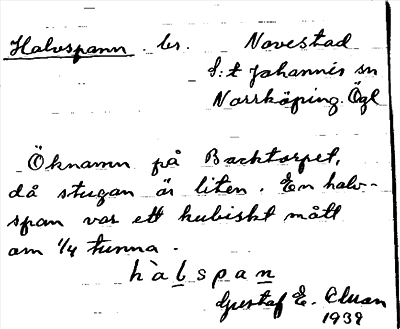 Halvspann. br. Navestad
S:t Johannis sn
Norrköping. Ögl
Öknamn på Backtorpet,
då stugan är liten. En halv-
span var ett kubiskt mått
om 1/4 tunna.
hàlspan
Gustaf E.
1939